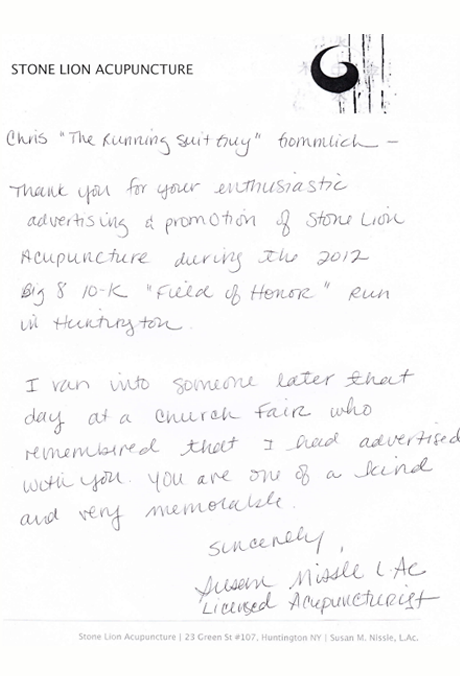 STONE LION ACUPUNCTURE
Chris "The Running Suit Guy" Gommlich —
Thank you for your enthusiastic
advertising & promotion of Stone Lion
Acupuncture during the 2012
Big 8 10-K "Field of Honor" Run
in Huntington.
I ran into someone later that
day at a church fair who
remembered that I had advertised
with you. You are one of a kind
and very memorable.
Sincerely,
Susan Nissle L.Ac
Licensed Acupuncturist
Stone Lion Acupuncture | 23 Green St #107, Huntington NY | Susan M. Nissle, L.Ac.